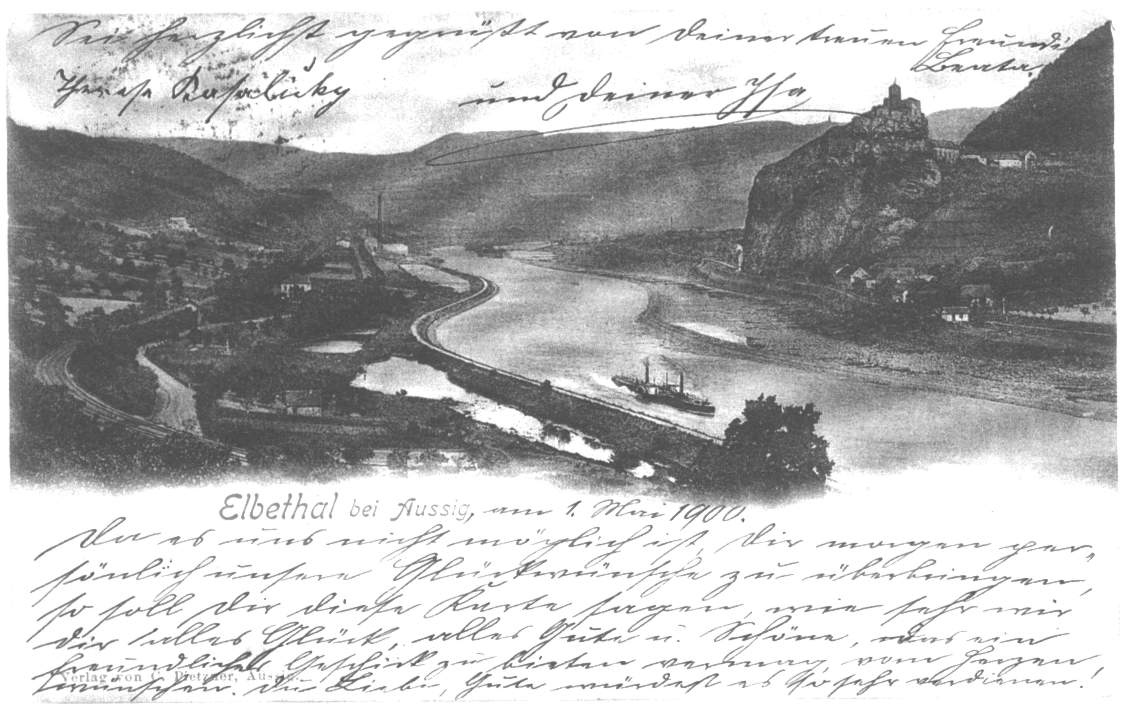 Sei herzlichst gegrüßt von Deiner treuen Freundin
Beata,
Therese
und Deiner Isa
Elbethal bei Aussig, am 1. Mai 1900.
Da es uns nicht möglich ist, Dir morgen per-
sönlich unsere Glückwünsche zu überbringen,
so soll Dir diese Karte sagen, wie sehr wir
Dir alles Glück, alles Gute u. Schöne, was ein
freundliches Geschick zu bieten vermag, vom Herzen
wünschen. Du Liebe, Gute würdest es so sehr verdienen!
Verlag von C. Pietzner, Aussig.